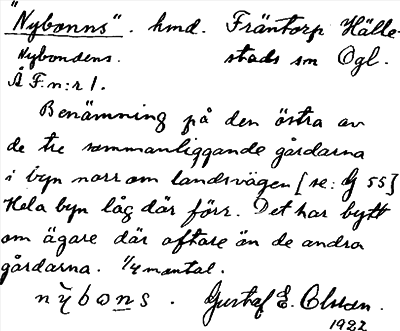 "Nybonns". hmd. Fräntorp Hälle-
Nybondens. stads sn Ögl.
Å F:n:r 1.
Benämning på den östra av
de tre sammanliggande gårdarna
i byn norr om landsvägen [se: G 55]
Hela byn låg där förr. Det har bytt
om ägare där oftare än de andra
gårdarna. 1/4 mantal.
nybons. Gustaf E. Olsson.
1922